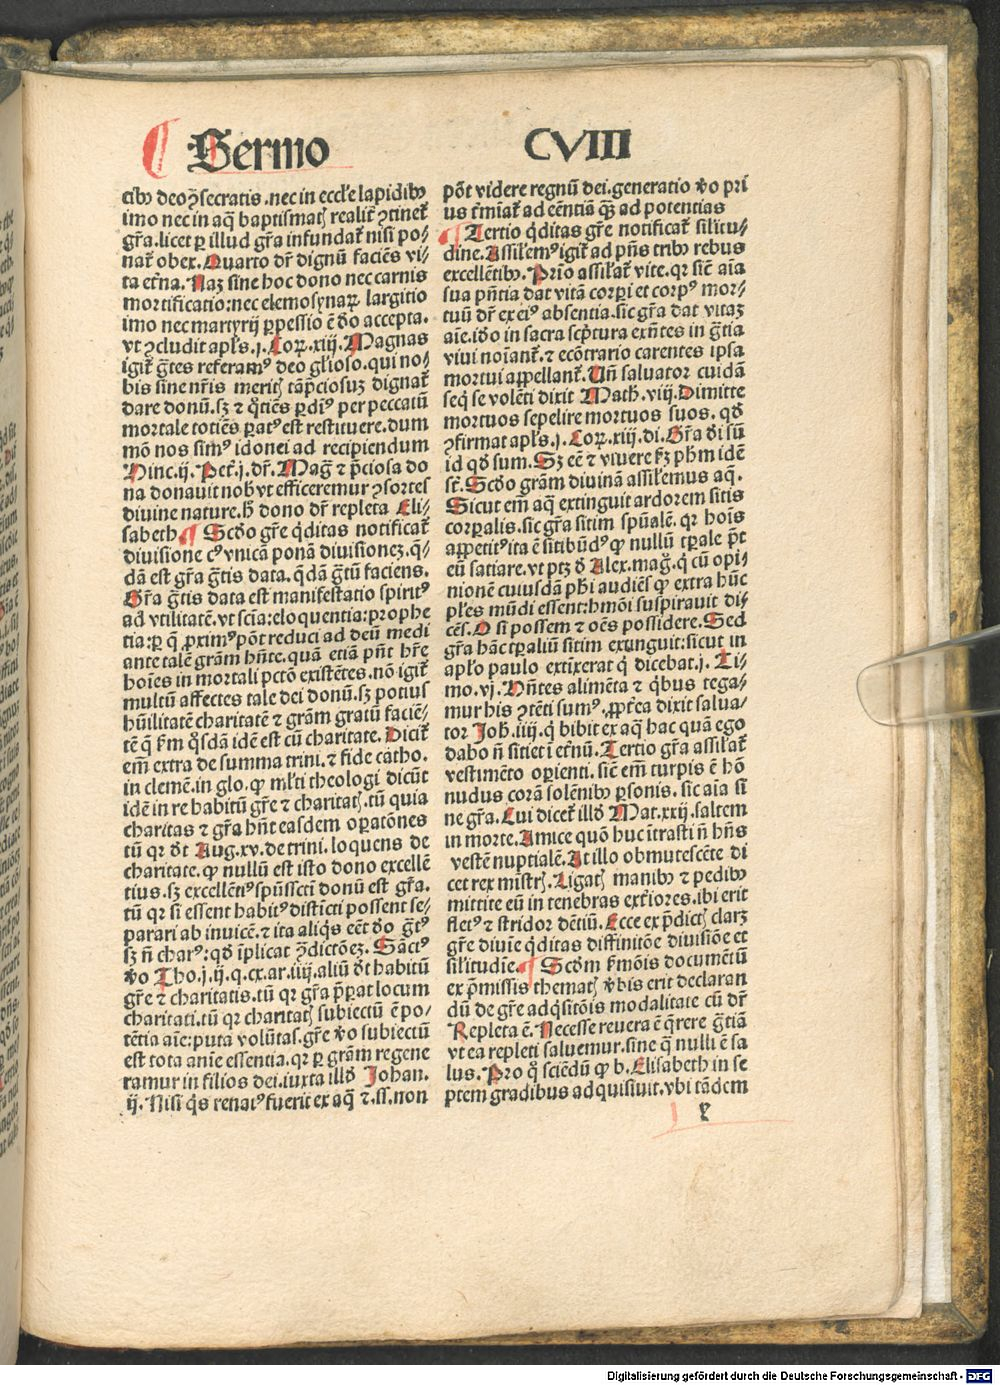 ¶ Sermo CVIII
cibꝰ deo ꝯsecratis .nec in eccl'e lapidibꝰ
imo nec in aq̄ baptismatꝭ realit̄ ꝯtinet̄
gr̄a.licet ꝑ illud gr̄a infundat̄ nisi po⸗
nat̄ obex. Quarto dr̄ dignū faciēs vi⸗
ta et̄na. Naꝫ sine hoc dono nec carnis
mortificatio:nec elemosynaꝝ largitio
imo nec martyrij ꝑpessio ē d̓o accepta.
vt ꝯcludit apl's.j. Coꝝ.xiij. Magnas
igit̄ gr̄tes referamꝰ deo gl'ioso.qui no⸗
bis sine nr̄is meritꝭ tāp̄ciosuꝫ dignat̄
dare donū.sꝫ ⁊ q̊tiēs ꝑdiꝰ per peccatū
mortale totiēs ꝑatꝰ est restituere.dum
mō nos simꝰ idonei ad recipiendum
Hinc.ij. Pet̄.j.dr̄. Mag̅ ⁊ p̄ciosa do
na donauit nob̓ vt efficeremur ꝯsortes
diuine nature.h̓ dono dr̄ repleta Eli⸗
sabeth ¶ Scd̓o gr̄e q̓ditas notificat̄
diuisione cꝰ vnicā ponā diuisioneꝫ.q̄⸗
dā est gr̄a gr̄tis data.q̄dā gr̄tū faciens.
Gr̄a gr̄tis data est manifestatio spiritꝰ
ad vtilitatē.vt scīa:eloquentia:prophe
tia:ꝑ q̄ ꝓximꝰ pōt reduci ad deū medi
ante talē grām hn̄te.quā etiā pn̄t hr̄e
hoīes in mortali pctō existētes.nō igit̄
multū affectes tale dei donū.sꝫ potius
hūilitatē charitatē ⁊ grām gratū faciē⸗
tē q̄ ẜm q̊sdā idē est cū charitate. Dicit̄
em̄ extra de summa trini.⁊ fide catho.
in clemē.in glo.ꝙ ml'ti theologi dicūt
idē in re habitū gr̄e ⁊ charitatꝭ.tū quia
charitas ⁊ gr̄a hn̄t easdem oꝑatōnes
tū qr d̓t Aug.xv.de trini.loquens de
charitate.ꝙ nullū est isto dono excellē
tius.sꝫ excellētiꝰ spūssctī donū est gr̄a.
tū qr si essent habitꝰ distīcti possent se⸗
parari ab inuicē.⁊ ita aliq̓s eēt d̓o gr̄tꝰ
sꝫ n̄ charꝰ:qd̓ īplicat ꝯdictōeꝫ. Sāctꝰ
v̓o Tho.j.ij.q.cx.ar.iiij.aliū d̓t habitū
gr̄e ⁊ charitatis.tū qr gr̄a p̄ꝑat locum
charitati.tū qr charitatꝭ subiectū ē po⸗
tētia aīe:puta volūtas.gr̄e v̓o subiectū
est tota anīe essentia.qr ꝑ grām regene
ramur in filios dei.iuxta illd̓ Johan.
ij. Nisi q̓s renatꝰ fuerit ex aq̄ ⁊.ss.non
pōt videre regnū dei.generatio v̓o pri
us t̓miat̄ ad eēntiā q̄ꝫ ad potentias
¶ Tertio q̓ditas gr̄e notificat̄ silitu⸗
dine. Assil'emꝰ igit̄ ad pn̄s tribꝰ rebus
excellētibꝰ. Prīo assil'at̄ vite.qr sic̄ aīa
sua pn̄tia dat vitā corꝑi et corpꝰ mor⸗
tuū dr̄ ex eiꝰ absentia.sic gr̄a dat vitaꝫ
aīe.iō in sacra scp̄tura exn̄tes in gr̄tia
viui noīant̄.⁊ ecōtrario carentes ipsa
mortui appellant̄. Un̄ saluator cuidā
seq̓ se volēti dixit Math.viij. Dimitte
mortuos sepelire mortuos suos.qd̓
ꝯfirmat apl's.j. Coꝝ.xiij.di. Gr̄a d̓i sū
id qd̓ sum. Sꝫ eē ⁊ viuere ẜꝫ ph̄m idē
st̄. Scd̓o grām diuinā assil'emus aq̄.
Sicut em̄ aq̄ extinguit ardorem sitis
corporalis.sic gr̄a sitim spūalē.qr hoīs
appetitꝰ ita ē sitibūdꝰ ꝙ nullū tꝑale p̄t
eū satiare.vt ptꝫ d̓ Alex.mag̅.q̓ cū opi⸗
nionē cuiusdā phī audiēs ꝙ extra hūc
pl'es mūdi essent:hmōi suspirauit di⸗
cēs. O si possem ⁊ oēs possidere. Sed
gr̄a hāc tꝑaliū sitim extinguit:sicut in
apl'o paulo extīxerat q̓ dicebat.j. Ti⸗
mo.vj. Hn̄tes alimēta ⁊ q̓bus tega⸗
mur his ꝯtēti sumꝰ.ꝓpt̓ea dixit salua⸗
tor Joh̓.iiij.q̓ bibit ex aq̄ hac quā ego
dabo n̄ sitiet ī et̓nū. Tertio gr̄a assil'at̄
vestimēto oꝑienti.sic̄ em̄ turpis ē hō
nudus corā solēnibꝰ ꝑsonis.sic aīa si
ne gr̄a. Cui dicet̄ illd̓ Mat.xxij.saltem
in morte. Amice quō huc ītrasti n̄ hn̄s
vestē nuptialē. At illo obmutescēte di
cet rex mīstrꝭ. Ligatꝭ manibꝰ ⁊ pedibꝰ
mittite eū in tenebras ext̓iores.ibi erit
fletꝰ ⁊ stridor dētiū. Ecce ex p̄dictꝭ claꝫ
gr̄e diuīe q̓ditas diffinitōe diuisiōe et
sil'itudīe. ¶ Scd̓m ẜmōis documētū
ex p̄missis thematꝭ v̓bis erit declaran
dū de gr̄e adq̓sitōis modalitate cū dr̄
Repleta ē. Necesse reuera ē q̄rere gr̄tiā
vt ea repleti saluemur.sine q̄ nulli ē sa
lus. Pro q̊ sciēdū ꝙ b. Elisabeth in se
ptem gradibus adquisiuit.vbi tādem
Digitalisierung gefördert durch die Deutsche Forschungsgemeinschaft - DFG